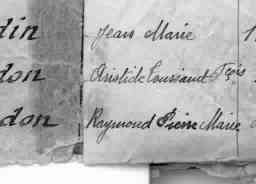 din Jean Marie 1
don Aristide Toussaint Frçois
don Raymond Pierre Marie